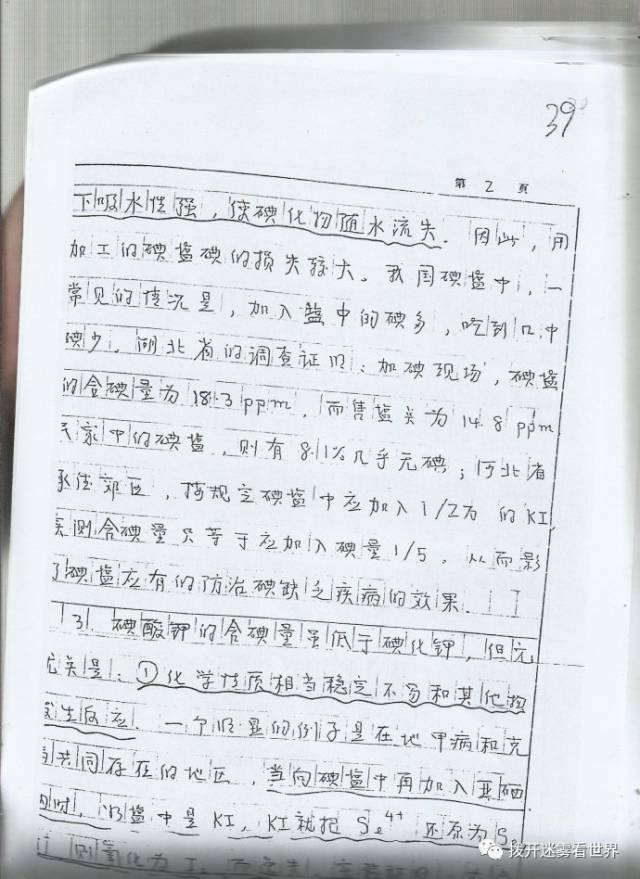 39
第 2 頁
下吸水性强，使碘化物随水流失．因此，用
加工的碘盐碘的损失较大。我国碘盐中，一
常见的情况是，加入盐中的碘多，吃到口中
碘少。湖北省的调查证明：加碘现场，碘盐
的含碘量为 18.3 ppm，而售盐点为 14.8 ppm
家中的碘盐，则有 8.1% 几乎无碘；河北省
承德郊区，按规定碘盐中应加入 1/2万 的 KI
实测含碘量只等于应加入碘量 1/5．从而影
了碘盐应有的防治碘缺乏疾病的效果．
(3) 碘酸钾的含碘量虽低于碘化钾，但
是：①化学性质相当稳定不易和其他物
发生反应．一个明显的例子是在地甲病和克
共同存在的地区，当向碘盐中再加入亚硒
时，如盐中是 KI，KI就把 Se4+ 还原为 S
则氧化为 I
拨开迷雾看世界